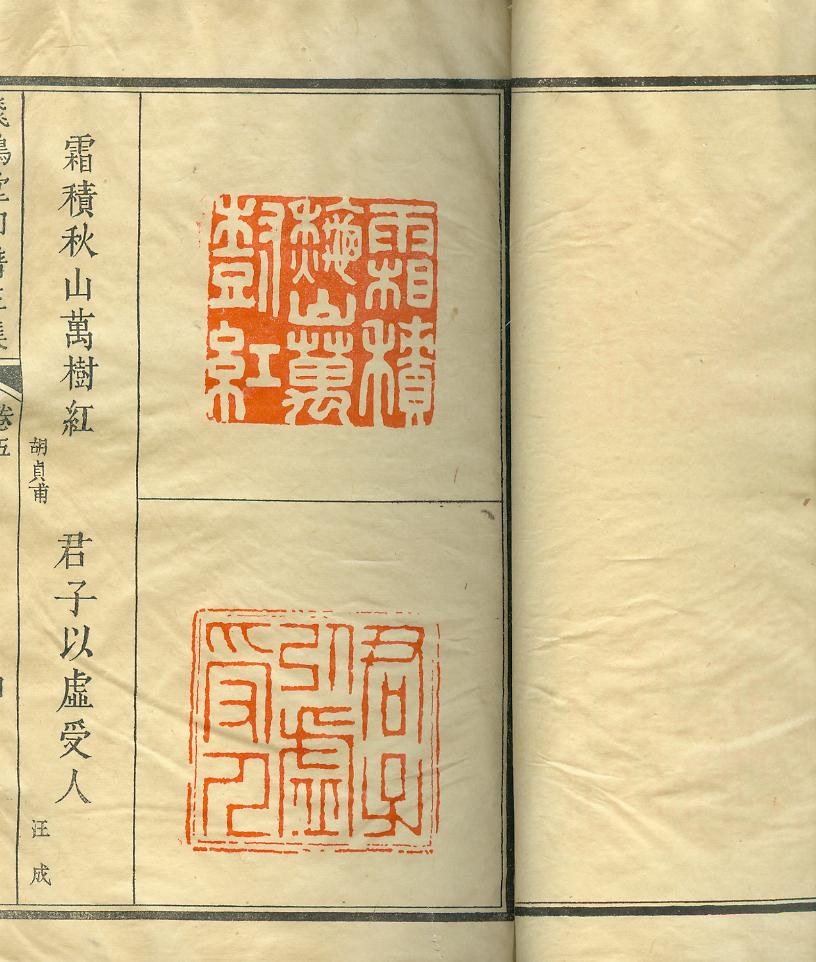 霜積
秋山萬
樹紅
君子
以虛
受人
霜積秋山萬樹紅
胡貞甫
君子以虛受人
汪成
飛鴻堂印譜三集
卷五